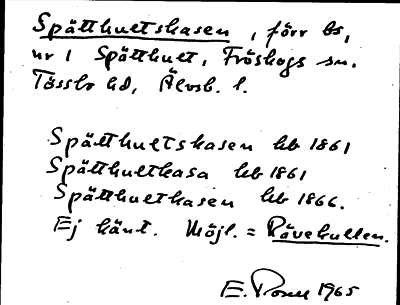 Spätthuetskasen, förr bs,
nr 1 Spätthuet, Fröskogs sn.
Tössbo hd, Älvsb. l.
Spätthuetskasen hb 1861
Spätthuetkasa hb 1861
Spätthuetkasen hb 1866.
Ej känt. Möjl. = Rävekullen.
E. 1965